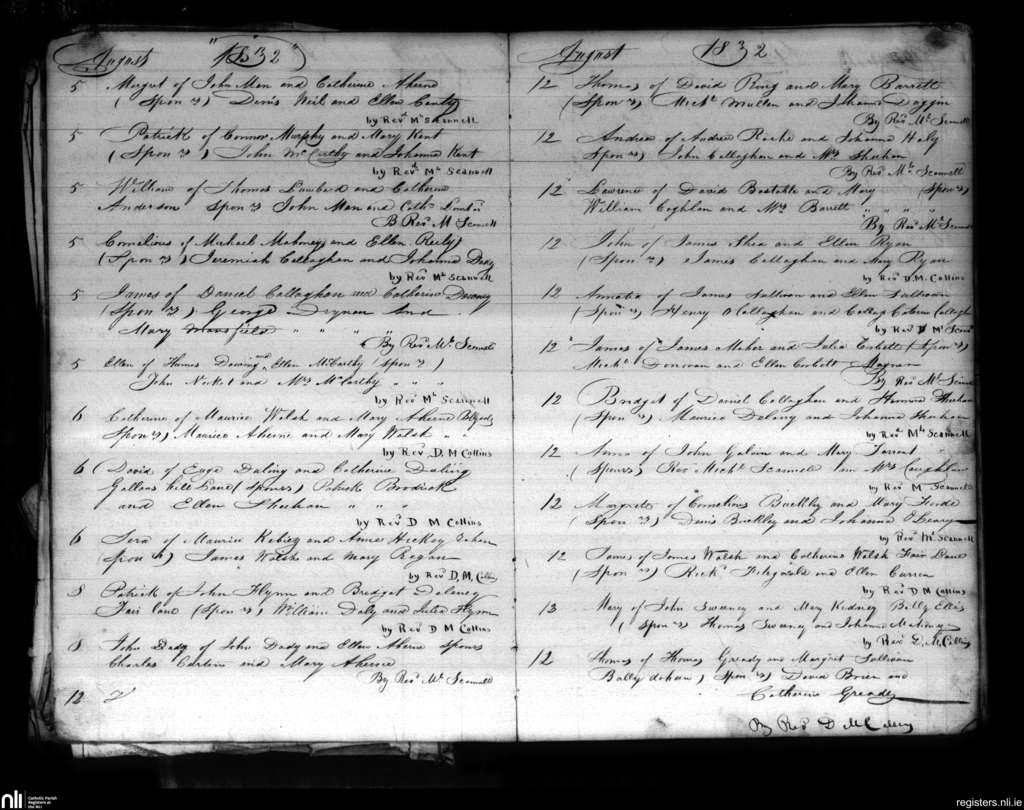 August 1832
5 Margret of John Man and Catherine Aherne
(Spon rs) Denis Neil and Ellen Canty
by Revd Mr Scannell
5 Patrick of Connor Murphy and Mary Kent
(Spon rs) John McCarthy and Johanna Kent
by Revd Mr Scannell
5 William of Thomas Lombard and Catherine
Anderson Spon rs John Man and Cathn
B Revd M Scannell
5 Cornelious of Michael Mahoney and Ellen Reily
(Spon rs) Jeremiah Callaghan and Johanna Dady
by Revd Mr Scannell
5 James of Daniel Callaghan and Catherine Downey
(Spon rs) George and
Mary Mansfield " " " "
By Revd Mr Scannell
5 Ellen of Dowing and Ellen McCarthy (Spon rs)
John and Mrs McCarthy " " "
by Revd Mr Scannell
6 Catherine of Maurice Welsh and Mary Aherne
Spon rs) Maurice Aherne and Mary Welsh " "
by Revd D. M Collins
6 David of Daling and Catherine Daling
Gallows hill Lane (Sponsrs) Patrick Brodrick
and Ellen Sheehan " " "
by Revd D M Collins
6 of Maurice and Hickey
Spon rs) James Welsh and Mary Regan
by Revd D. M. Collins
8 Patrick of John Flynn and Bridget Delaney
Fair lane (Spon rs) William Daly and Julia Flynn
by Revd D M Collins
8 John Dady of John Dady and Ellen Aherne Spons
Charles and Mary Aherne
By Revd Mr Scannell
12
August 1832
12 Thomas of David Ring and Mary Barrett
(Spon rs) Michl Mullen and Johanna Duggin
By Revd Mr Scannell
12 Andrew of Andrew Roche and Johanna Haly
Spon rs) John Callaghan and Mrs Sheehan
By Revd Mr Scannell
12 Lawrence of David Bastable and Mary (Spon rs)
William Coghlan and Mrs Barrett " " "
By Revd Mr Scannell
12 John of James Shea and Ellen Ryan
(Spon rs) James Callaghan and Mary Ryan
by Revd D. M. Collins
12 of James Sullivan and Ellen Sullivan
(Spon rs) Henry O Callaghan and
by Revd Mr
12 James of James Maher and Julia Corbett (Spon rs)
Michl Donovan and Ellen Corbett
By Revd Mr
12 Bridget of Daniel Callaghan and Sheehan
(Spon rs) Maurice Delany and Johanna Sheehan
by Revd Mr Scannell
12 of John Galvin and Mary Torrent
(Sponsrs) Revd Michl Scannell Mrs Coughlan
by Revd M Scannell
12 Margrett of Cornelious Buckley and Mary Forde
(Spon rs) Denis Buckley and Johanna O'Leary
by Revd Mr Scannell
12 James of James Walsh and Catherine Walsh Fair Lane
(Spon rs) Richd Fitzgerald and Ellen Curren
by Revd D M Collins
13 Mary of John Sweeney and Mary Kidney
(Spon rs Thomas Sweeney and Johanna Mahoney
by Revd M Collins
12 Thomas of Thomas Gready and Margret Sullivan
(Spon rs) David Brien and
Catherine Gready
By Revd D M Collins
nli
Catholic Parish
Registers at
the NLI
registers.nli.ie